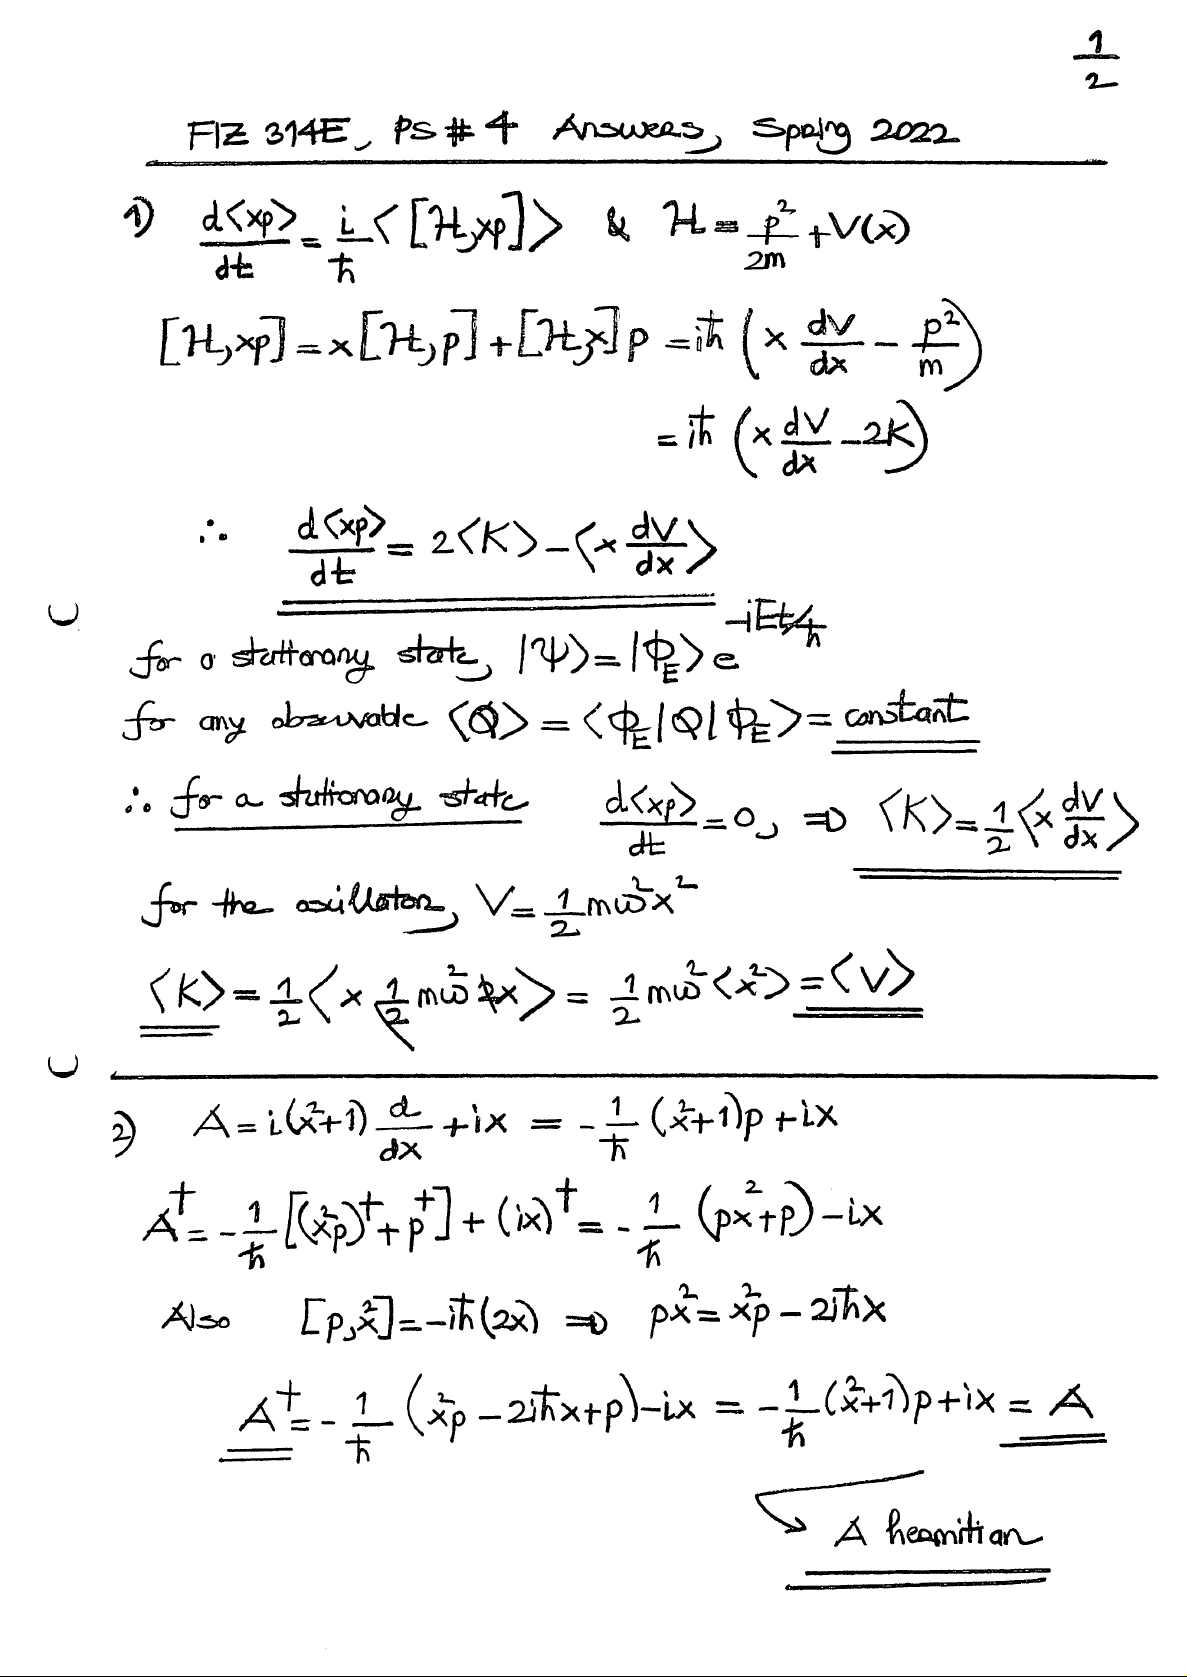 1/2
FIZ 314E, PS # 4 Answers, Spring 2022
1) d<xp>/dt = i/ħ <[H,xp]> & H = p²/2m + V(x)
[H,xp] = x[H,p] + [H,x]p = iħ (x dV/dx - p²/m)
= iħ (x dV/dx - 2K)
∴ d<xp>/dt = 2<K> - <x dV/dx>
for a stationary state, |Ψ> = |Φ_E> e^(-iEt/ħ)
for any observable <Q> = <Φ_E|Q|Φ_E> = constant
∴ for a stationary state d<xp>/dt = 0, ⇒ <K> = 1/2 <x dV/dx>
for the oscillator, V = 1/2 mω²x²
<K> = 1/2 <x 1/2 mω² 2x> = 1/2 mω² <x²> = <V>
2) A = i(x²+1) d/dx + ix = - 1/ħ (x²+1)p + ix
A† = - 1/ħ [(x²p)† + p†] + (ix)† = - 1/ħ (px²+p) - ix
Also [p,x²] = -iħ(2x) ⇒ px² = x²p - 2iħx
A† = - 1/ħ (x²p - 2iħx + p) - ix = - 1/ħ (x²+1)p + ix = A
A hermitian